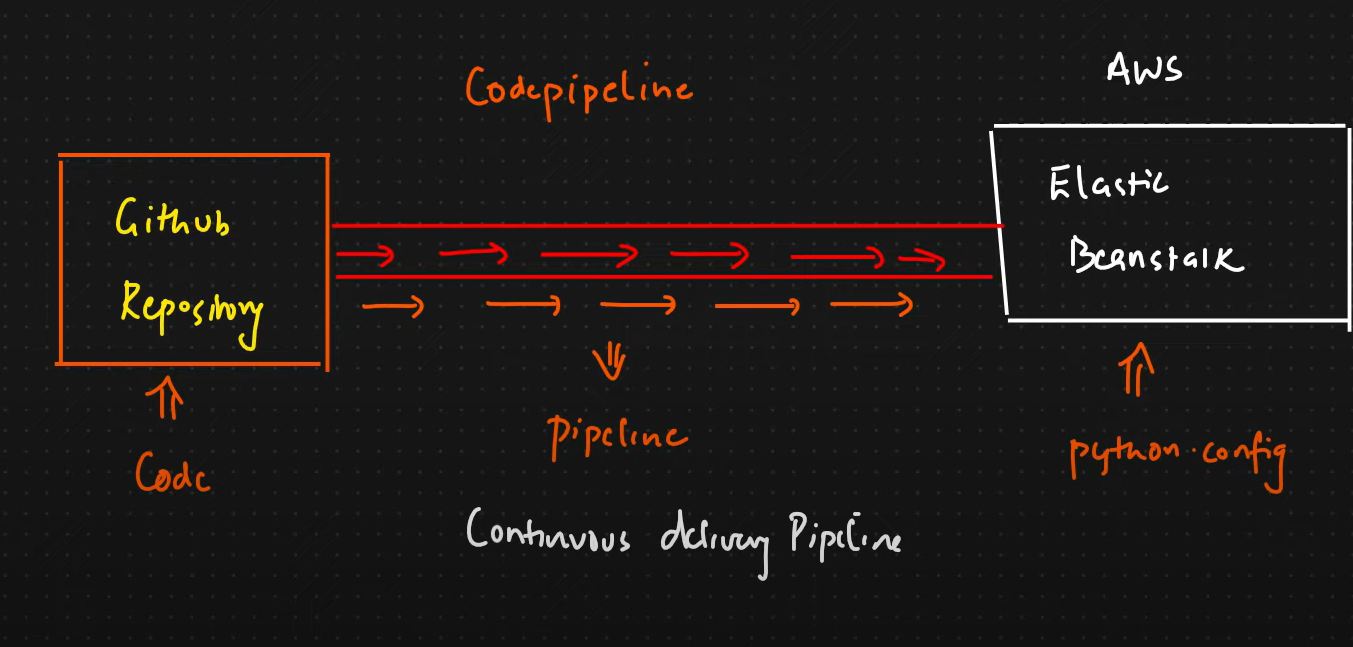 Codepipeline
AWS
Github
Repository
Elastic
Beanstalk
Code
Pipeline
python.config
Continuous delivery Pipeline